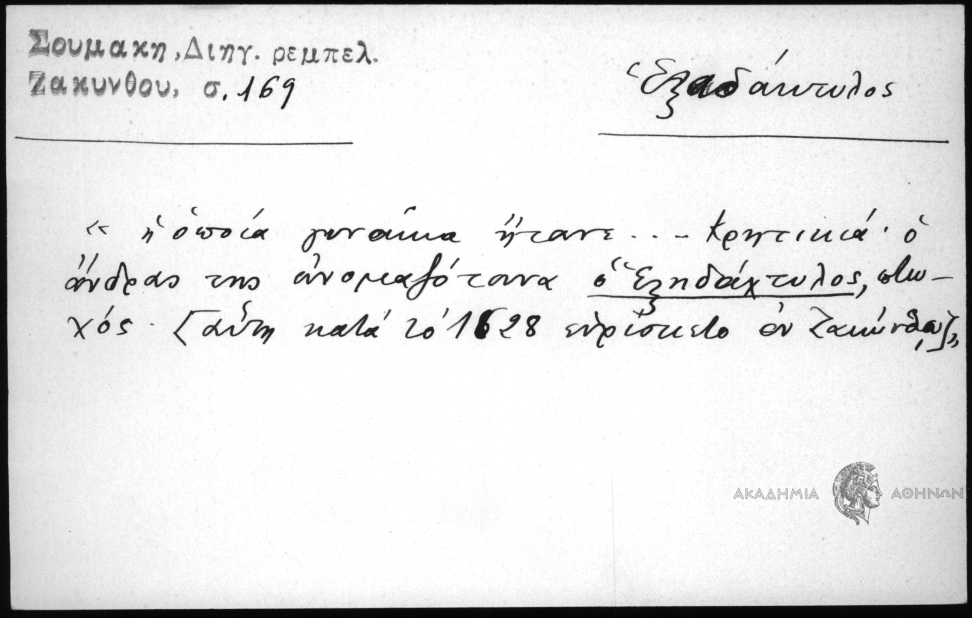 Σουμακη, Διηγ. ρεμπελ.
Ζακυνθου, σ. 169
Ἑξαδάκτυλος
« ἡ ὁποία γυναίκα ἤτανε ... κρητικιά· ὁ
ἄνδρας της ὀνομαζότανα ὁ Ἑξηδάχτυλος, πτω-
χός. [αὕτη κατά τό 1628 εὑρίσκετο ἐν Ζακύνθῳ]»
ΑΚΑΔΗΜΙΑ ΑΘΗΝΩΝ